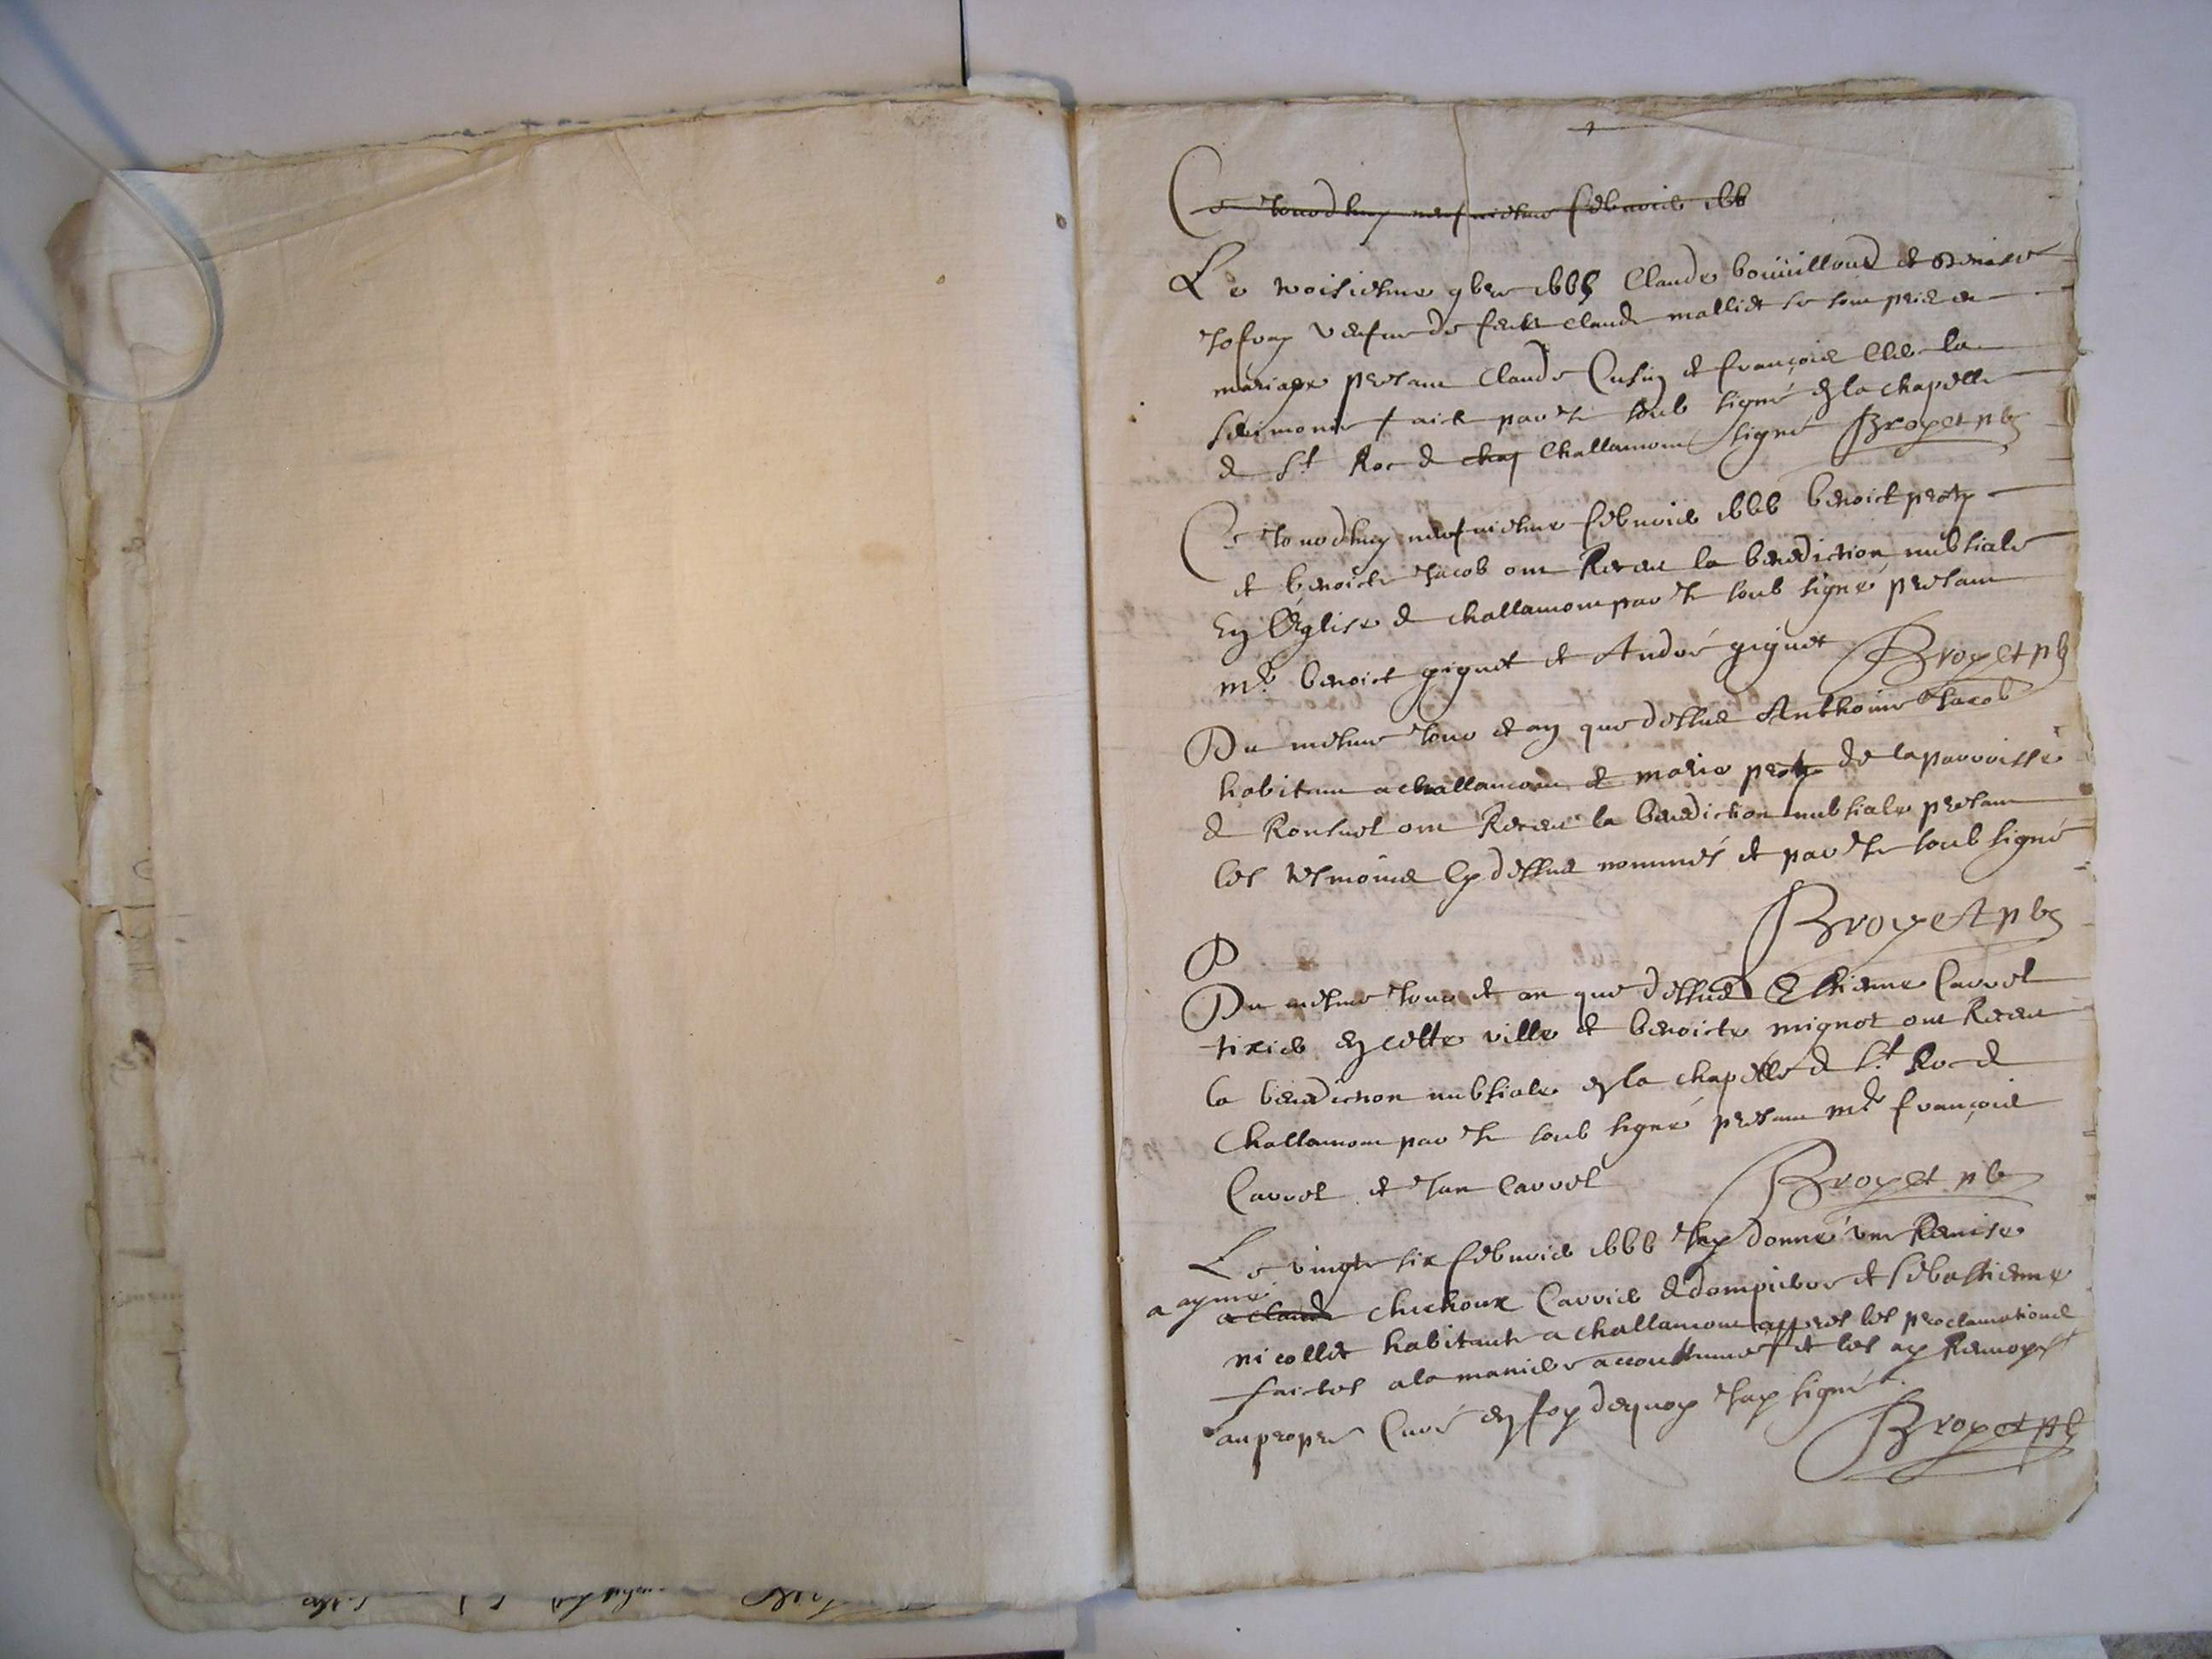 Ce jourdhuy neufviesme febvrier 166
Le troisiesme 9bre 1665 Claude bouilloud et Denise
Jofray veufve de feu Claude malliet se sont pris en
mariage presant Claude Cusin et françois la
serimonie faict par je soub signé en la chapelle
de St Roc de chal Challamont signé Broyet pbr
Ce jourdhuy neufviesme febvrier 1666 benoict prost
et benoicte Jacob ont Receu la benediction nubsiale
En l'Église de challamont par je soub signé presant
Mre benoict giguet et André giguet Broyet pbr
Du mesme jour et an que dessus Anthoine Jacob
habitant a challamont et marie prost de la parroisse
de Ronsuel ont Receu la benediction nubsiale presant
les tesmoins cy dessus nommés et par je soub signé
Broyet pbr
D
Du mesme jour et an que dessus Estienne Carrel
tixier en cette ville et benoicte mignot ont Receu
la benediction nubsiale en la chapelle de St Roc de
Challamont par je soub signé presant Mre françois
Carrel et Jan Carrel Broyet pbr
Le vingt six febvrier 1666 Jay donné une Remise
a aymé
a claude chichoux Carrier de dompierre et sebastienne
nicollet habitante a challamont appres les proclamations
faictes a la maniere accoustumé et les ay Renvoyes
au propre Curé en foy dequoy Jay signé.
Broyet pbr